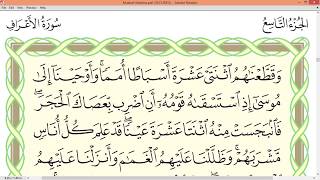 الجزء التاسع
سورة الأعراف
وَقَطَّعْنَٰهُمُ ٱثْنَتَىْ عَشْرَةَ أَسْبَاطًا أُمَمًا ۚ وَأَوْحَيْنَآ إِلَىٰ
مُوسَىٰٓ إِذِ ٱسْتَسْقَىٰهُ قَوْمُهُۥٓ أَنِ ٱضْرِب بِّعَصَاكَ ٱلْحَجَرَ ۖ
فَٱنۢبَجَسَتْ مِنْهُ ٱثْنَتَا عَشْرَةَ عَيْنًا ۖ قَدْ عَلِمَ كُلُّ أُنَاسٍ
مَّشْرَبَهُمْ ۚ وَظَلَّلْنَا عَلَيْهِمُ ٱلْغَمَٰمَ وَأَنزَلْنَا عَلَيْهِمُ